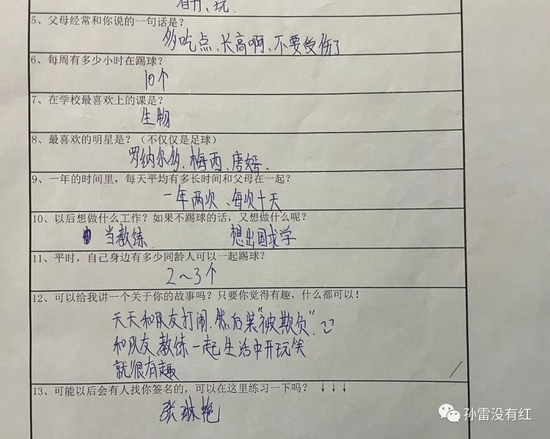 5、父母经常和你说的一句话是？
多吃点、长高啊、不要受伤了
6、每周有多少小时在踢球？
10个
7、在学校最喜欢上的课是？
生物
8、最喜欢的明星是？（不仅仅是足球）
罗纳尔多、梅西、唐嫣、
9、一年的时间里，每天平均有多长时间和父母在一起？
一年两次、每次十天
10、以后想做什么工作？如果不踢球的话，又想做什么呢？
当教练 想出国求学
11、平时，自己身边有多少同龄人可以一起踢球？
2~3个
12、可以给我讲一个关于你的故事吗？只要你觉得有趣，什么都可以！
天天和队友打闹、然后装"被欺负"
和队友 教练 一起生活中开玩笑
就很有趣
13、可能以后会有人找你签名的，可以在这里练习一下吗？ ↓↓↓
张琳艳
孙雷没有红